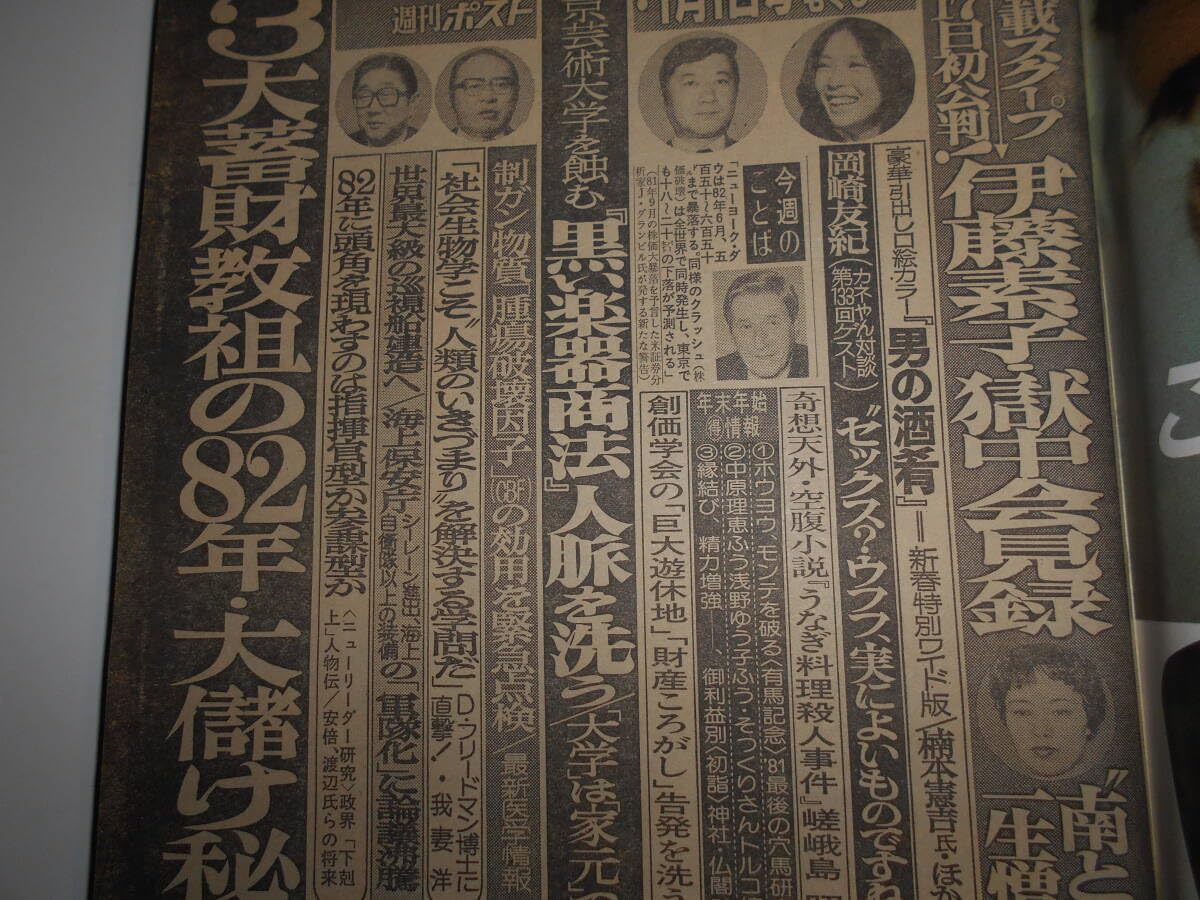 載スクープ
17日初公判!
伊藤素子・獄中会見録
"南と
一生憎
豪華引出し口絵カラー『男の酒肴』―新春特別ワイド版/楠本憲吉氏・ほか
岡崎友紀
(カネやん対談
第133回ゲスト)
"セックス?・ウフフ、実によいものですね
奇想天外・空腹小説『うなぎ料理殺人事件』嵯峨島
今週の
ことば
「ニューヨーク・ダ
ウは82年6月、五
百五十〜六百五十
ドルまで暴落する。同様のクラッシュ(株
価破壊)は全世界で同時発生し、東京で
も十八〜二十%の下落が予測される」
(81年9月の株価大暴落を予言した米証券分
析家J・グランビル氏が発する新たな警告)
年末年始
得情報
①ホウヨウ、モンテを破る〈有馬記念〉'81最後の穴馬研
②中原理恵ふう浅野ゆう子ふう・そっくりさんトルコ
③縁結び、精力増強――、御利益別〈初詣〉神社・仏閣
創価学会の「巨大遊休地」「財産ころがし」告発を洗う
週刊ポスト
1月1日号
京芸術大学を蝕む『黒い楽器商法』人脈を洗う/「大学」は「家元」の
制ガン物質「腫瘍破壊因子」(CBF)の効用を緊急点検/最新医学情報
「社会生物学こそ"人類のいきづまり"を解決する学問だ」
D・フリードマン博士に
直撃!・我妻 洋
世界最大級の巡視船建造へ/海上保安庁
シーレーン進出、海上
自衛隊以上の装備
の「軍隊化」に論議沸騰
82年に頭角を現わすのは指揮官型か参謀型か
〈ニューリーダー研究〉政界「下剋
上」人物伝/安倍、渡辺氏らの将来
3大蓄財教祖の82年・大儲け秘